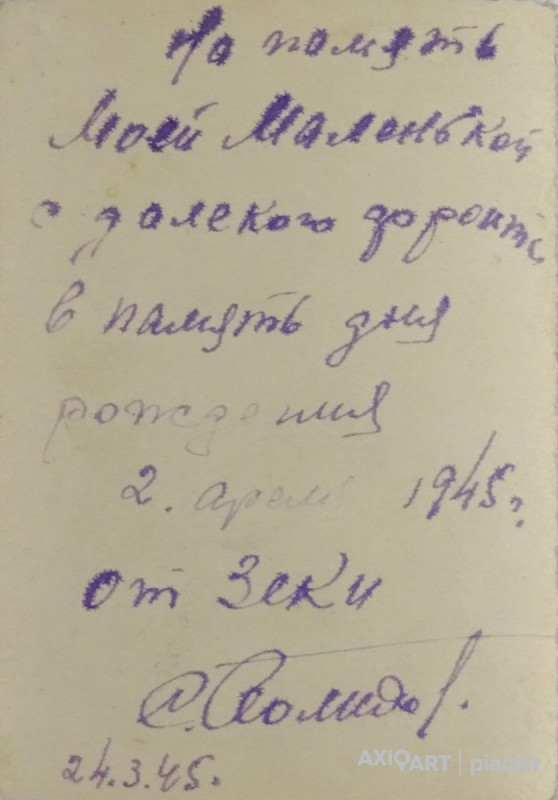 На память
Моей Маленькой
с далекого фронта
в память дня
рождения
2. 1945 г.
от Зеки
С.
24.3.45.
AXIOART | piactér